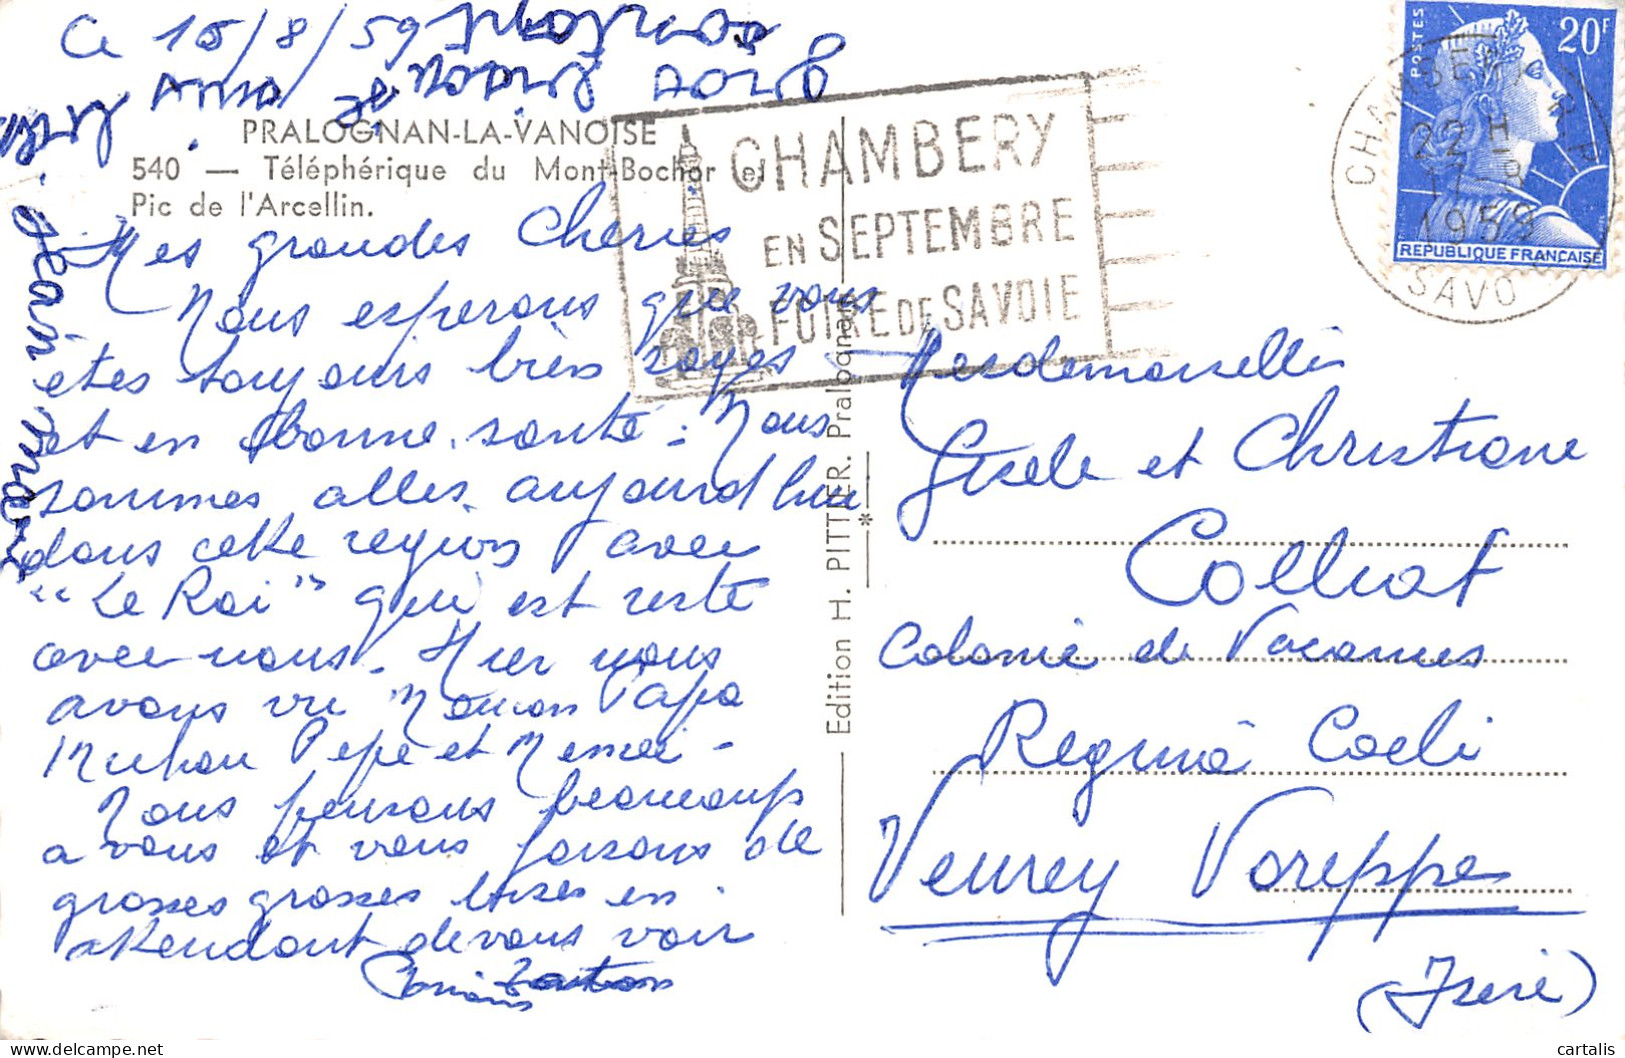 Ce 16/8/59
PRALOGNAN-LA-VANOISE
540 — Téléphérique du Mont-Bochor et
Pic de l'Arcellin.
Mes grandes Cheries
Nous esperons que vous
êtes toujours bien sages
et en bonne santé. Nous
sommes alles aujourd'hui
dans cette region avec
"Le Roi" qui est resté
avec nous. Hier nous
avons vu Maman Papa
Pépé et Mémé -
Nous pensons beaucoup
a vous et vous faisons de
grosses grosses bises en
attendant de vous voir
Tonton
Jean Marc
Edition H. PITTIER. Pralognan
CHAMBERY
EN SEPTEMBRE
FOIRE DE SAVOIE
CHAMBERY R.P.
22 H
17-8
1959
SAVOIE
POSTES
20F
REPUBLIQUE FRANÇAISE
Mesdemoiselles
Gisele et Christiane
Collrat
Colonie de Vacances
Regina Coeli
Veurey Voreppe
(Isere)
cartalis